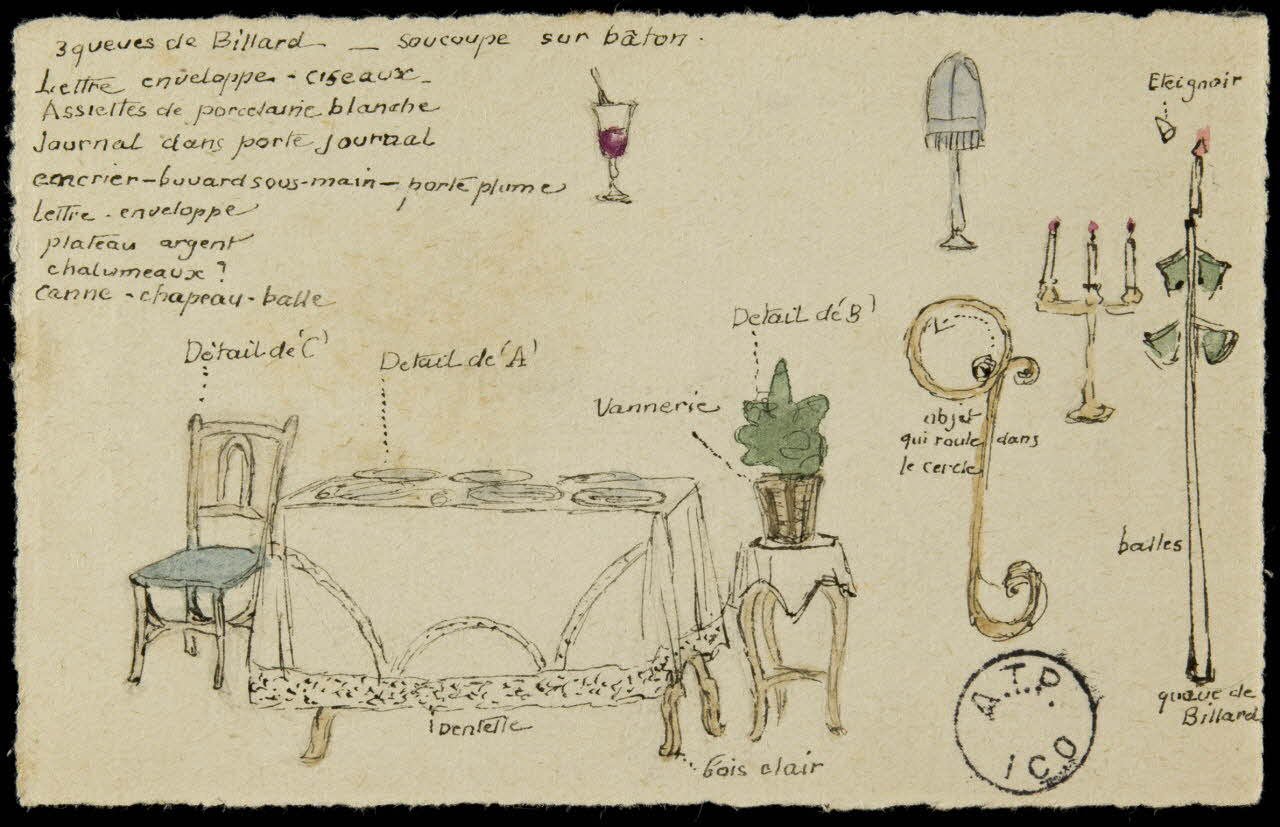 3 queues de Billard — soucoupe sur bâton.
Lettre enveloppe - ciseaux -
Assiettes de porcelaine blanche
Journal dans porte journal
encrier - buvard sous-main - porte plume
Lettre - enveloppe
plateau argent
chalumeaux ?
canne - chapeau - balle
Eteignoir
Détail de 'C'
Detail de 'A'
Detail de 'B'
Vannerie
objet
qui roule dans
le cercle
balles
queue de
Billard
Dentelle
bois clair
A.T.P.
ICO